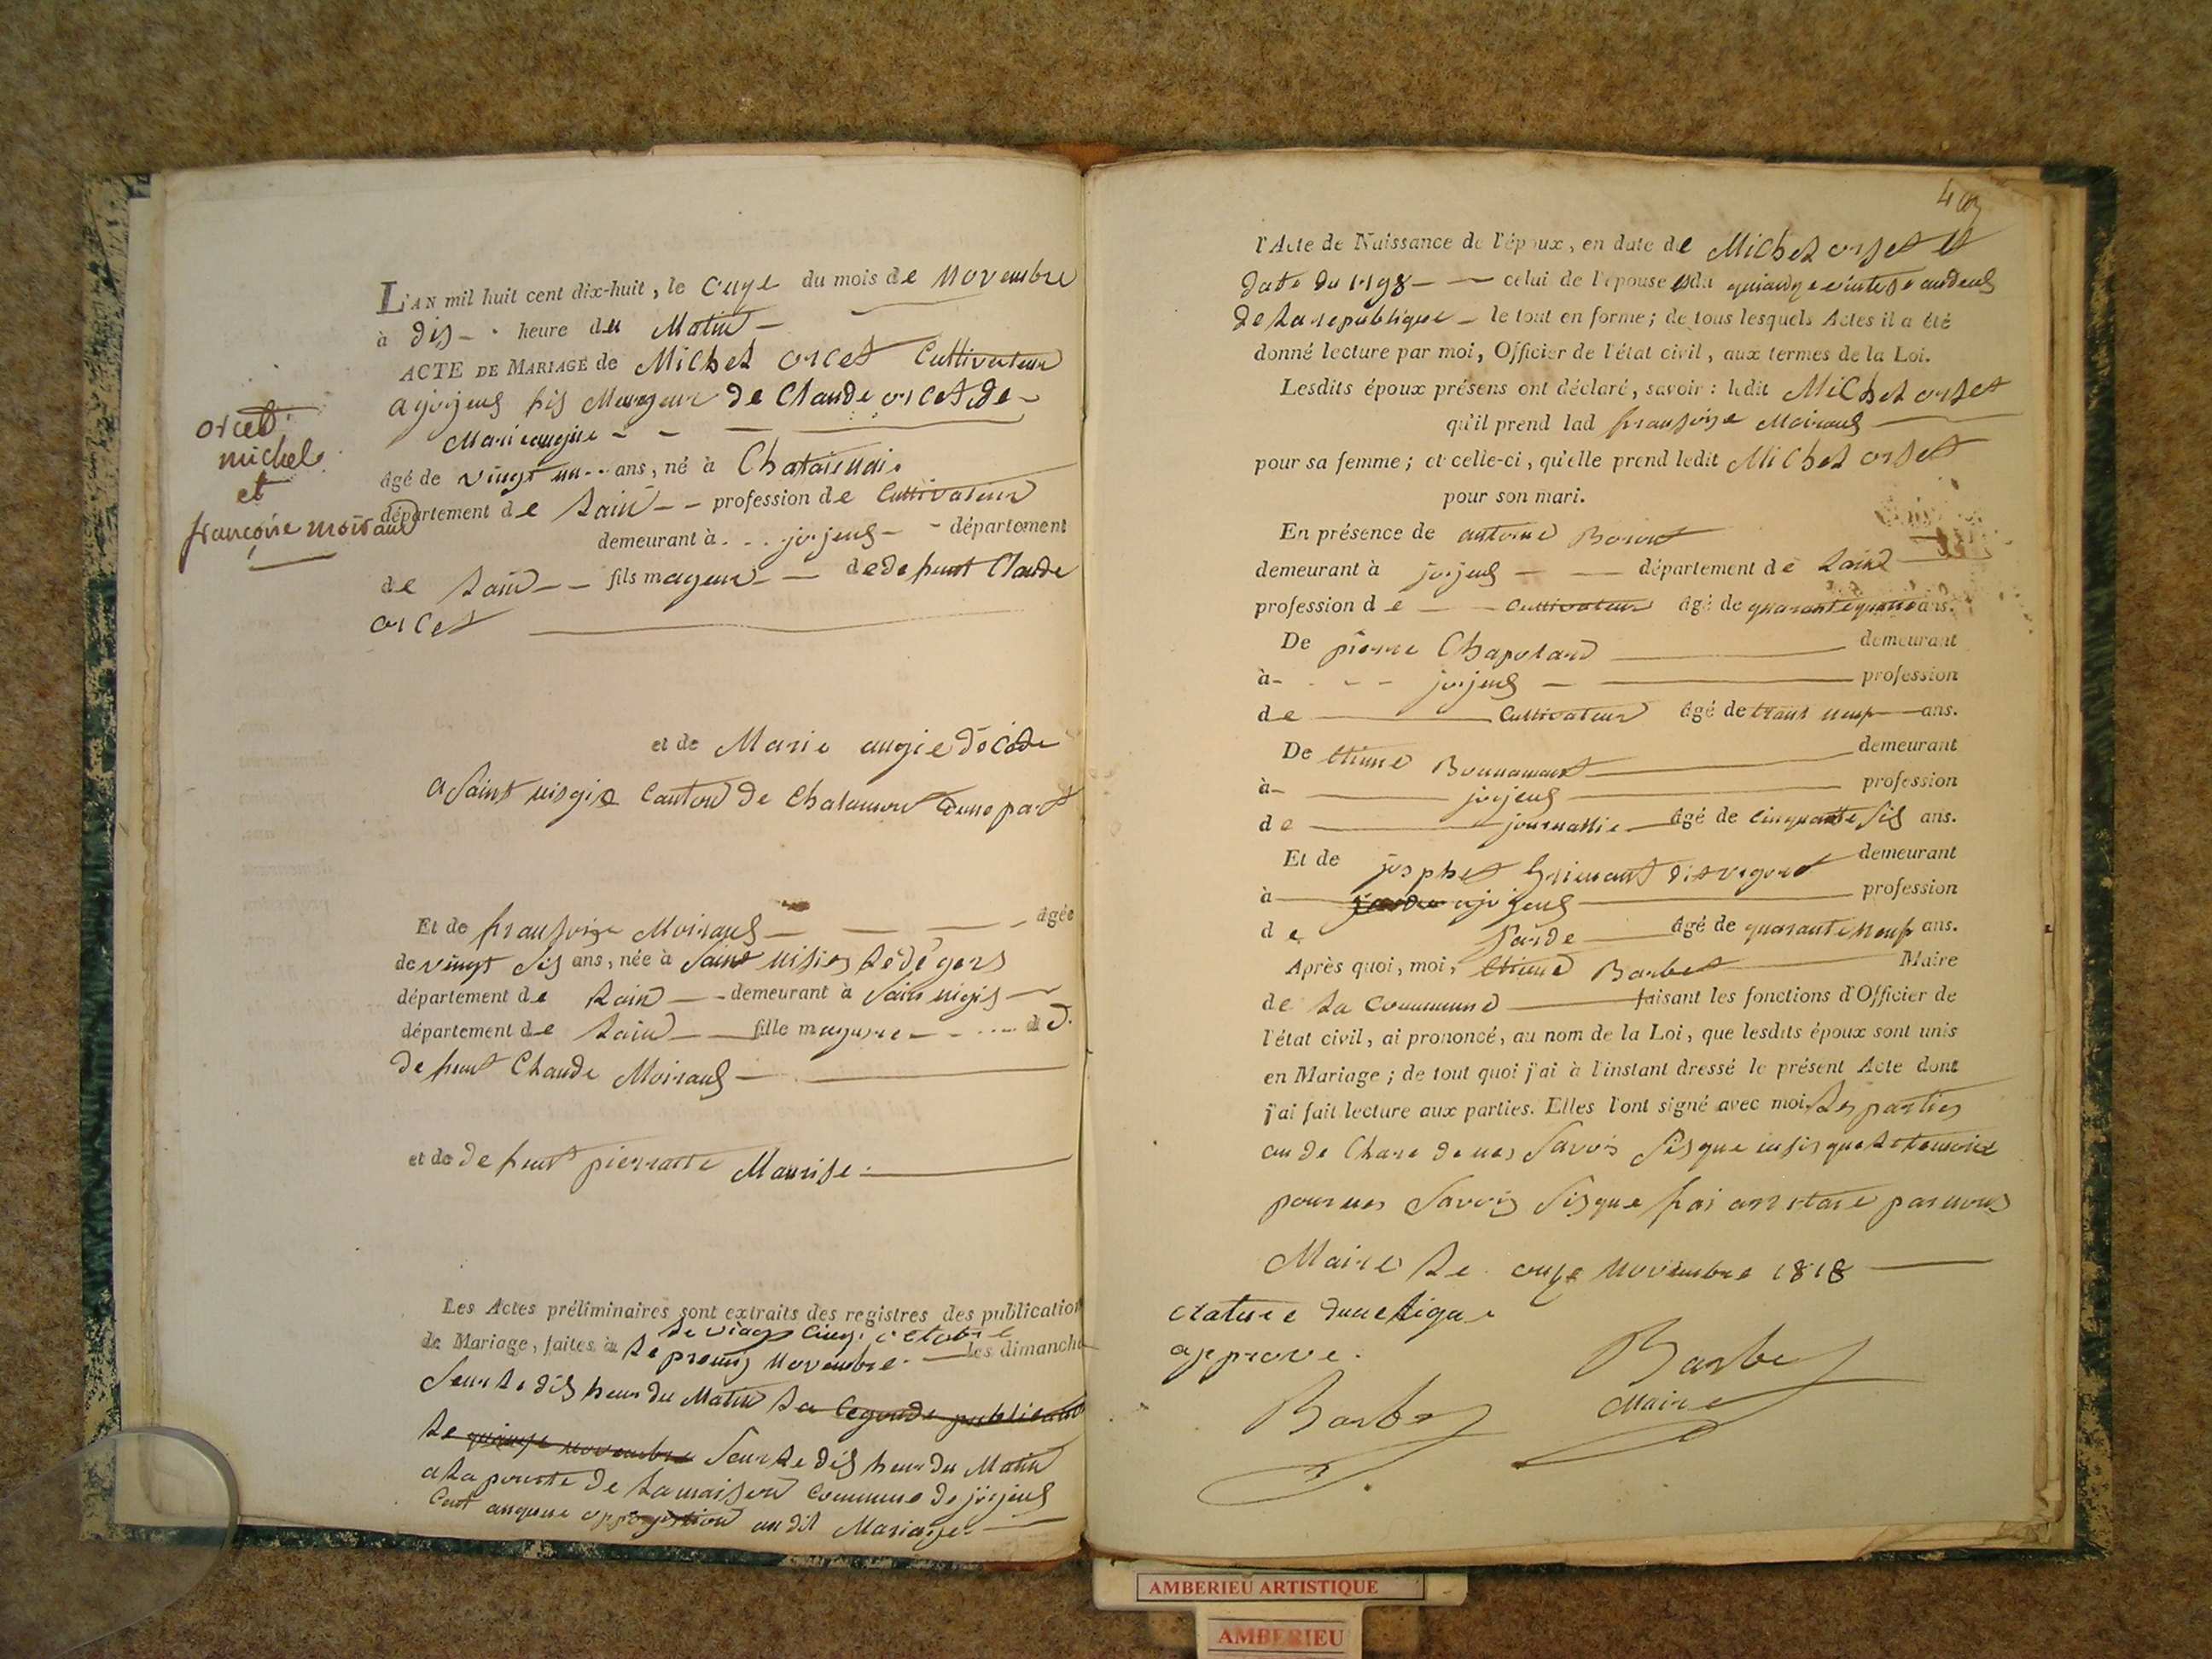 orcet
michel
et
françoise moiraud
L'AN mil huit cent dix-huit, le onze du mois de Novembre
à dis heure du Matin
ACTE DE MARIAGE de Michel orcet Cultivateur
a joyeus fis Mageur de Claude orcet de
Marie augie
âgé de vingt un ans, né à
département de Lain profession de Cultivateur
demeurant à joyeus département
de Lain fils mageur de defunt Claude
orcet
et de Marie augie décéde
a Saint nisgie Canton de Chalamont dune part
Et de fransoise Moiraus âgée
de vingt sis ans, née à Saint nisies le
département de Lain demeurant à Sain nigis
département de Lain fille mageure de
defunt Claude Moiraus
et de defunt pierrette Maurise
Les Actes préliminaires sont extraits des registres des publication
le vingt cinq octobre
de Mariage, faites à le premis Novembre les dimanche
Seur le dis heur du Matin la segonde publication
le quinse novembre Seur le dis heur du Matin
a la pourte de la maison Commune de joyeus
opposition au dit Mariage
l'Acte de Naissance de l'époux, en date de Michel orset et
date du 1798 celui de l'épouse du
de la republique le tout en forme; de tous lesquels Actes il a été
donné lecture par moi, Officier de l'état civil, aux termes de la Loi.
Lesdits époux présens ont déclaré, savoir: ledit Michel orset
qu'il prend lad fransoise Moiraus
pour sa femme; et celle-ci, qu'elle prend ledit Michel orset
pour son mari.
En présence de antoine
demeurant à joyeus département de Lain
profession de Cultivateur âgé de quarante quatre ans.
De pierre Chapoland demeurant
à joyeus profession
de Cultivateur âgé de trante neuf ans.
De Etiene Bonnamant demeurant
à joyeus profession
de journallie âgé de cinquante sis ans.
Et de josphet dit demeurant
à a joyeus profession
de garde âgé de quarante neuf ans.
Après quoi, moi, Etiene Barbet Maire
de la Commune faisant les fonctions d'Officier de
l'état civil, ai prononcé, au nom de la Loi, que lesdits époux sont unis
en Mariage; de tout quoi j'ai à l'instant dressé le présent Acte dont
j'ai fait lecture aux parties. Elles l'ont signé avec moi les parties
on de Clare de nes Savois Sisgne insis que le temoint
pour nes Savois Sisgne fai par nous
Maire le onze Novembre 1818
approve.
Barbet
Barbet
Maire
AMBERIEU ARTISTIQUE
AMBERIEU